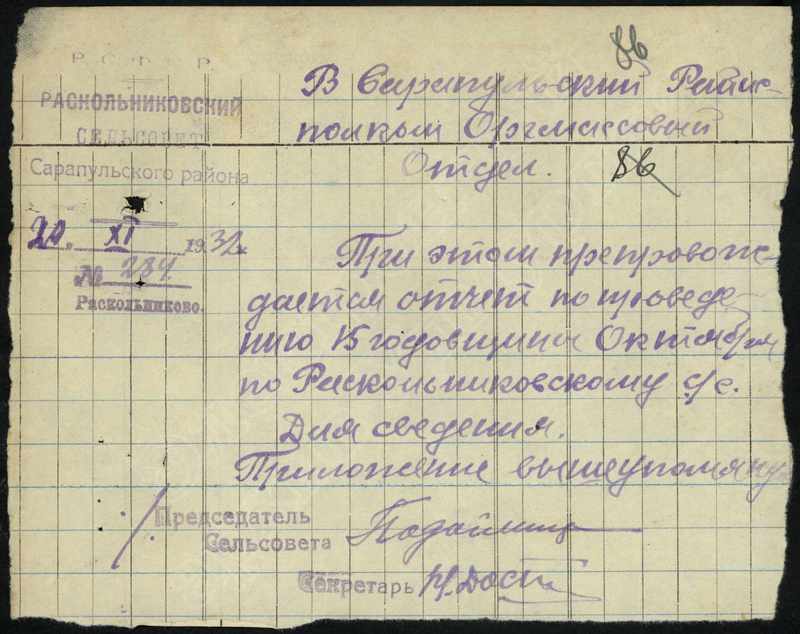 86
Р С Ф С Р
РАСКОЛЬНИКОВСКИЙ
СЕЛЬСОВЕТ
Сарапульского района
20. XI 1932
№ 234.
Раскольниково.
В Сарапульский Райис-
полком Оргмассовый
Отдел. 86
При этом препровож-
дается отчет по проведе-
нию 15 годовщины Октября
по Раскольниковскому с/с.
Для сведения.
Приложение вышеупомяну.
Председатель
Сельсовета
Секретарь